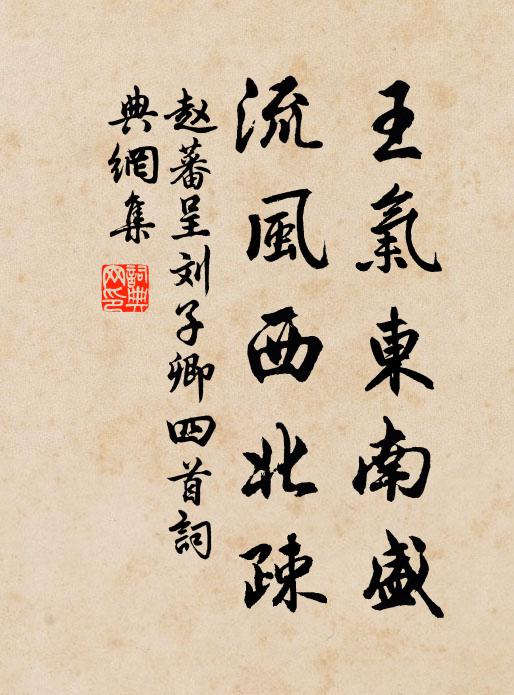 王氣東南盛
流風西北疎
赵蕃呈刘子卿四首詞
典網集
詞典网印